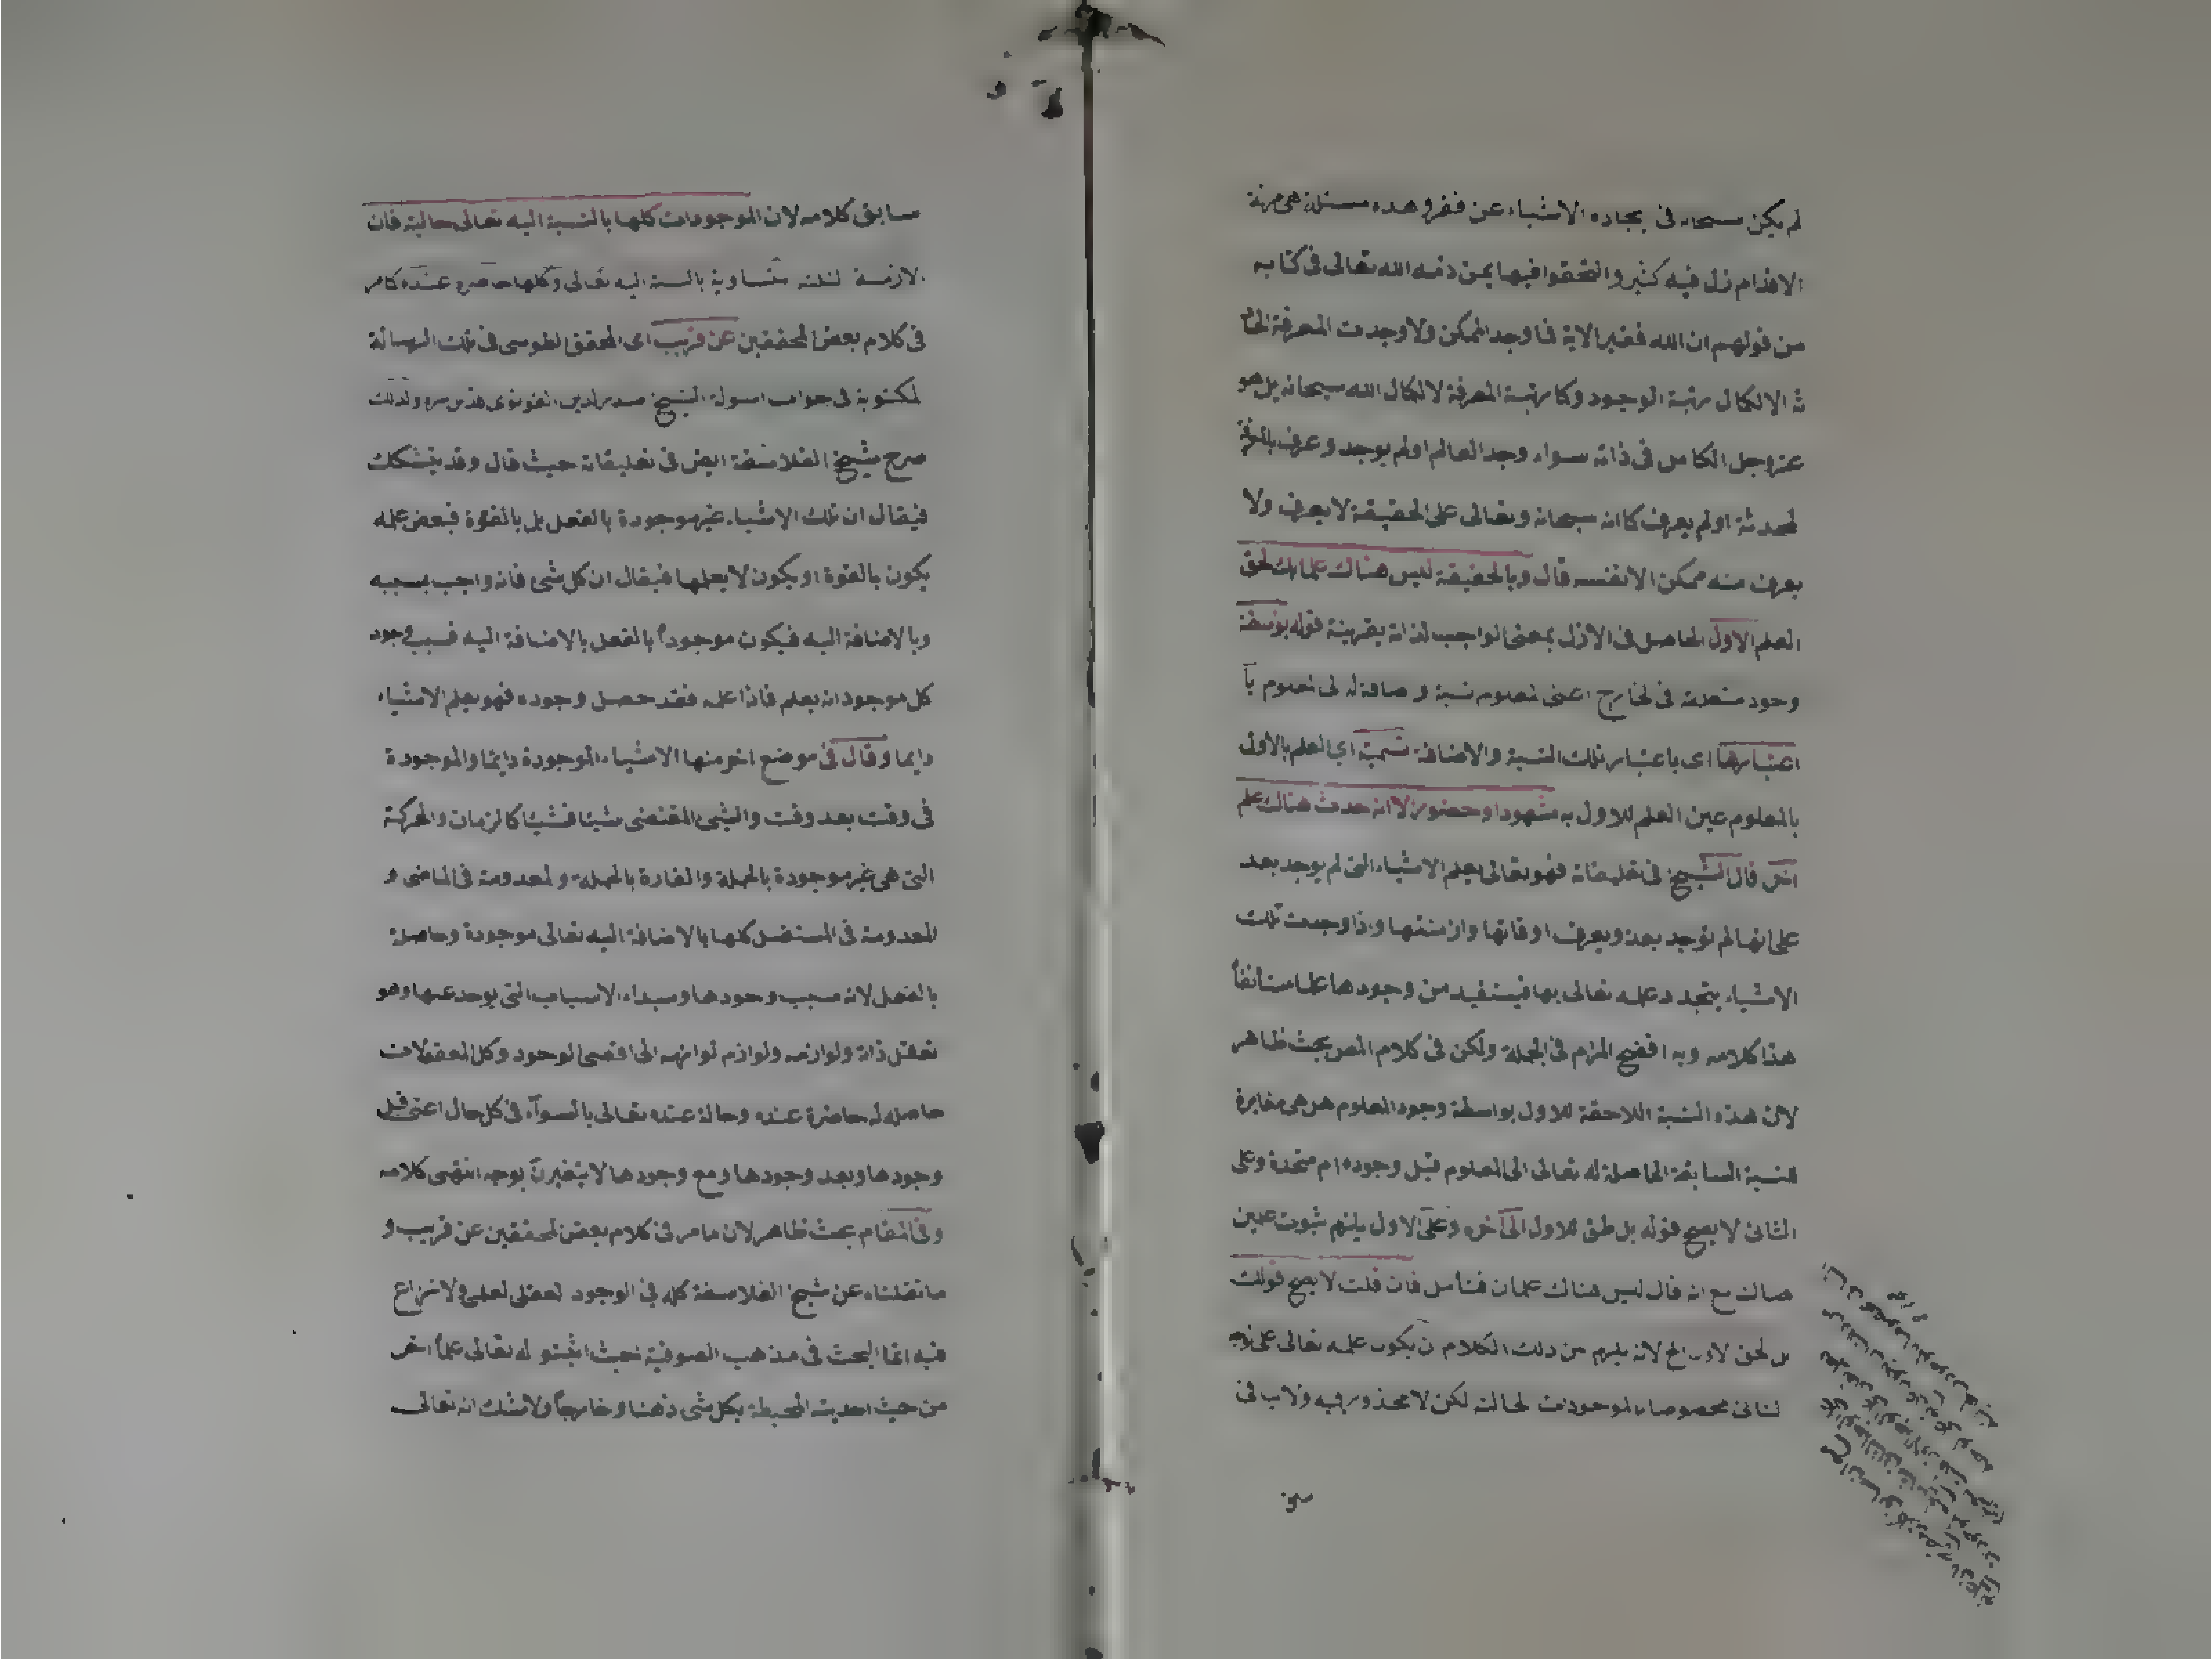 لم يكن سبحانه فى ايجاده الاشياء عن فقر وهذه مسئلة هى مزلة
الاقدام زل فيه كثير والتحقوا فيها بمن ذمه الله تعالى فى كتابه
من قولهم ان الله فقير الاية فما وجد الممكن ولا وجدت المعرفة الحا
ثة الا لكمال مرتبة الوجود وكمال مرتبة المعرفة لا لكمال الله سبحانه بل هو
عزوجل الكامل فى ذاته سواء وجد العالم اولم يوجد وعرف بالمعرفة
المحدثة اولم يعرف كما انه سبحانه وتعالى على الحقيقة لا يعرف ولا
يعرف منه ممكن الا نفسه قال وبالحقيقة ليس هناك علمان بل لحق
العلم الاول الحاصل فى الازل بمعنى الواجب لذاته بقرينة قوله بواسطة
وجود متعلقه فى الخارج اعنى المعلوم نسبة واضافة له الى المعلوم با
اعتبارها اى باعتبار تلك النسبة والاضافة نسميه اى العلم بالاول
بالمعلوم عين العلم الاول به شهودا وحضورا لا انه حدث هناك علم
اخر قال الشيخ فى تعليقاته فهو تعالى يعلم الاشياء التى لم يوجد بعد
على انها لم توجد بعد ويعرف اوقاتها وازمنتها واذا وجدت تلك
الاشياء يتجدد علمه تعالى بها فيستفيد من وجودها علما مستأنفاً
هذا كلامه وبه افضح المرام فى الجملة ولكن فى كلام المص بحث ظاهر
لان هذه النسبة اللاحقة للاول بواسطة وجود المعلوم هل هى مغايرة
للنسبة السابقة الحاصلة له تعالى الى المعلوم قبل وجوده ام متحدة وعلى
الثانى لا يصح قوله بل لحق للاول الى آخره وعلى الاول يلزم ثبوت علمين
هناك مع انه قال ليس هناك علمان فتأمل فان قلت لا يصح قولك
بل لحق الاول الخ لانه يلزم من ذلك الكلام ان يكون علمه تعالى على الوجه
الثانى مخصوصا بالموجودات الحالية لكن لا محذور فيه ولا ب فى
سابق كلامه لان الموجودات كلها بالنسبة اليه تعالى حالية فان
الازمنة الثلثة متساوية بالنسبة اليه تعالى وكلها حاضرة عنده كما مر
فى كلام بعض المحققين عن قريب اى المحقق الطوسى فى تلك الرسالة
المكتوبة فى جواب اسولة الشيخ صدر الدين القونوى قدس سره ولذلك
صرح شيخ الفلاسفة ايض فى تعليقاته حيث قال وقد يتشكك
فيقال ان تلك الاشياء غير موجودة بالفعل بل بالقوة فبعض علمه
يكون بالقوة او يكون لا يعلمها فيقال ان كل شئ فانه واجب بسببه
وبالاضافة اليه فيكون موجوداً بالفعل بالاضافة اليه فسبب وجود
كل موجود انه يعلم فاذا علمه فقد حصل وجوده فهو يعلم الاشياء
دايما وقال فى موضع اخر منها الاشياء الموجودة دايما والموجودة
فى وقت بعد وقت والشئ المقتضى شيئا فشيئا كالزمان والحركة
التى هى غير موجودة بالجملة والقارة بالجملة والمعدومة فى الماضى و
المعدومة فى المستقبل كلها بالاضافة اليه تعالى موجودة وحاصلة
بالفعل لانه سبب وجودها ومبداء الاسباب التى يوجد عنها وهو
تعقل ذاته ولوازمه ولوازم لوازمه الى اقصى الوجود وكل المعقولات
حاصله له حاضرة عنده وحالة عنده تعالى بالسوآء فى كل حال اعنى قبل
وجودها وبعد وجودها ومع وجودها لا يتغيرن بوجه انتهى كلامه
وفى المقام بحث ظاهر لان ما مر فى كلام بعض المحققين عن قريب و
ما نقلناه عن شيخ الفلاسفة كله فى الوجود العقلى العلمى ولا نزاع
فيه انما البحث فى مذهب الصوفية حيث اثبتو له تعالى علماً اخر
من حيث احديته المحيطة بكل شئ ذهنا وخارجاً ولا شك انه تعالى